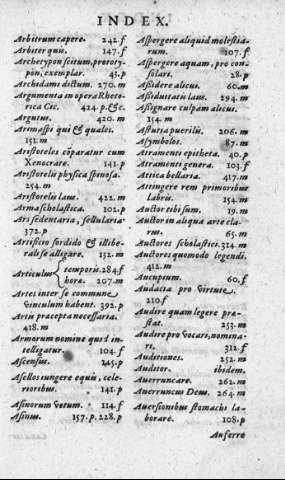 INDEX.
Arbitrum capere. 242.f
Arbiter quis. 147.f
Archetypon scitum, prototy-
pon, exemplar. 43.p
Archidami dictum. 270.m
Argumenta in opera Rheto-
rica Cic. 424.p.&c.
Argutus. 420.m
Arimaspi qui & quales.
151.m
Aristoteles cōparatur cum
Xenocrate. 141.p
Aristotelis physica spinosa.
254.m
Aristotelis laus. 422.m
Arma scholastica. 102.p
Ars sedentaria, sellularia.
372.p
Artifico sordido & illibe-
rali se alligare. 132.m
Articulus { temporis. 284.f
hora. 207.m
Artes inter se commune
vinculum habent. 392.p
Artis præcepta necessaria.
418.m
Armorum nomine quid in-
telligatur. 104.f
Ascensus. 245.p
Asellos iungere equis, cele-
rioribus. 141.p
Asinorum votum. 114.f
Asinius. 157.p.228.p
Aspergere aliquid molestia-
rum. 107.f
Aspergere aquam, pro con
solari. 28.p
Assidere alicui. 60.m
Assiduitatis laus. 294.m
Assignare culpam alicui.
154.m
Astutia puerilis. 206.m
Asymbolos. 87.m
Atramenti epitheta. 40.p
Atramenti genera. 103.f
Attica bellaria. 417.m
Attingere rem primoribus
labris. 154.m
Auctor tibi sum. 19.m
Auctor in aliqua arte cla-
rus. 65.m
Auctores scholastici. 314.m
Auctores quomodo legendi.
412.m
Aucupium. 60.f
Audacia pro Virtute.
210.f
Audire quam legere præ-
stat. 253.m
Audire pro vocari, nomina-
ri. 312.f
Auditiones. 252.m
Auditor. ibidem.
Averruncare. 262.m
Averruncus Deus. 264.m
Aversionibus stomachi la-
borare. 108.p
Auferre